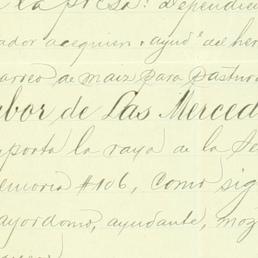 la presa: dependie
ador acequiero, ayud.e del her
arreo de maiz para pastur
abor de Las Merced
mporta la raya de la Se
emoria #106, como sig
ayordomo, ayudante, moz